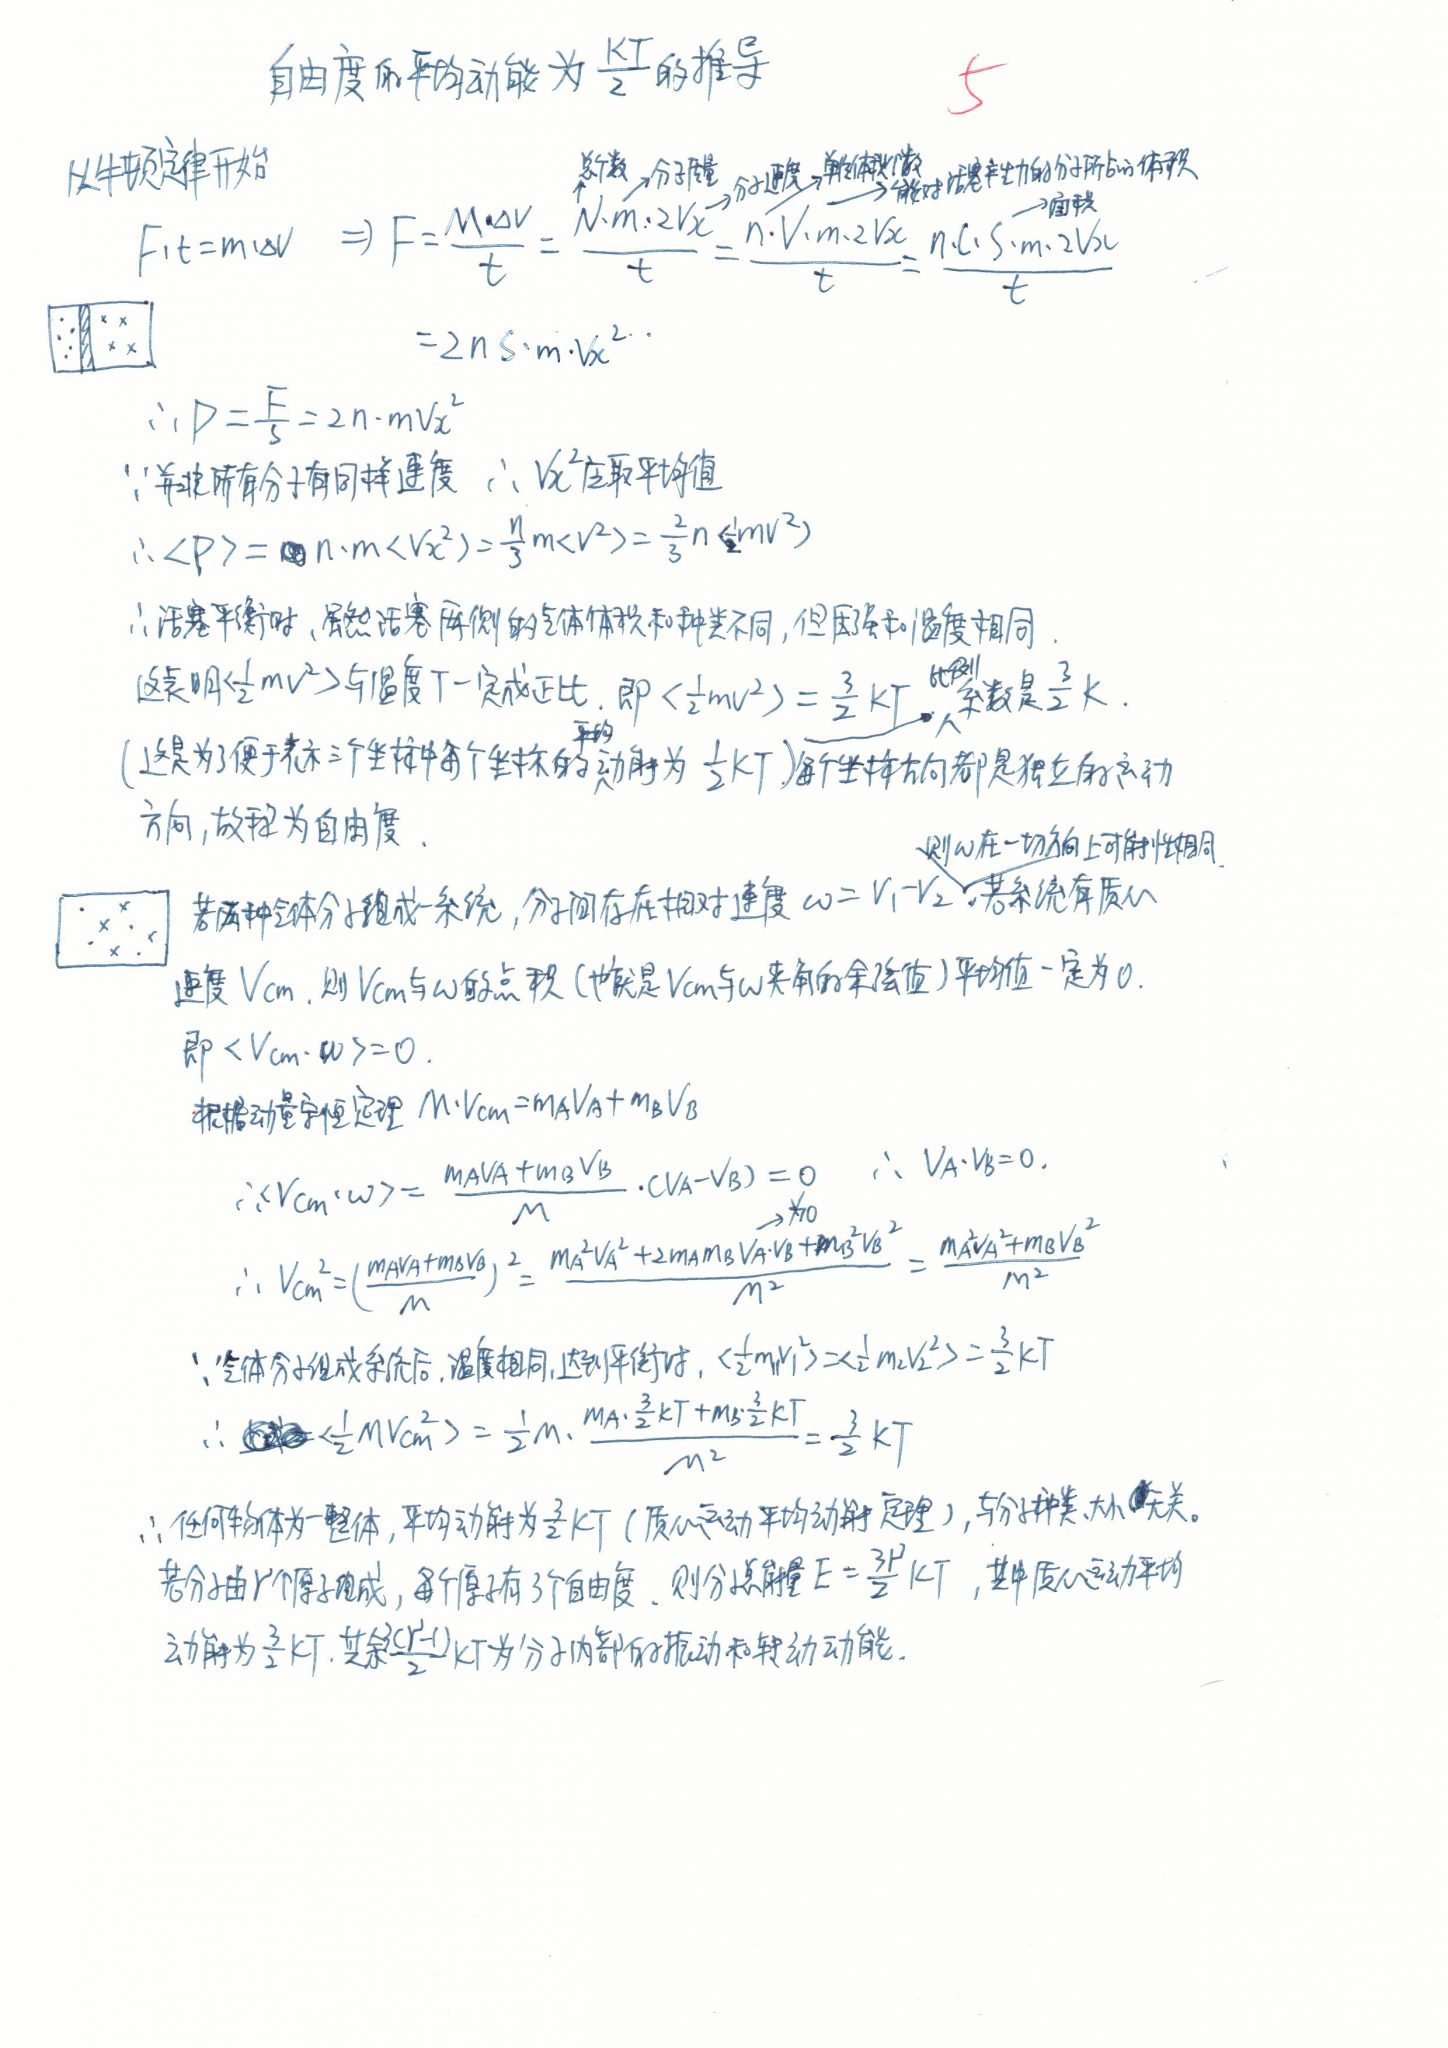 自由度的平均动能为 KT/2 的推导
5
从牛顿定律开始
总个数 分子质量 分子速度 单位体积个数 能对活塞产生力的分子所占的体积
面积
F·t=m·ΔV ⇒ F = M·ΔV/t = N·m·2Vx/t = n·V·m·2Vx/t = n·l·S·m·2Vx/t
=2nS·m·Vx²
∴P = F/S = 2n·mVx²
∵并非所有分子有同样速度 ∴ Vx²应取平均值
∴<P> = n·m<Vx²> = n/3 m<V²> = 2/3 n<1/2 mV²>
∴活塞平衡时,虽然活塞两侧的气体体积和种类不同,但压强和温度相同.
这表明<1/2 mv²>与温度T一定成正比.即<1/2 mv²> = 3/2 KT.比例系数是3/2 K.
(这是为了便于表示三个坐标中每个坐标的平均动能为 1/2 KT)每个坐标方向都是独立的运动
方向,故称为自由度.
则ω在一切方向上可能性相同
若两种气体分子组成一系统,分子间存在相对速度 ω=V₁-V₂.若系统有质心
速度 Vcm.则Vcm与ω的点积(也就是Vcm与ω夹角的余弦值)平均值一定为0.
即<Vcm·ω>=0.
根据动量守恒定理 M·Vcm=mAVA+mBVB
∴<Vcm·ω> = (mAVA+mBVB)/M ·(VA-VB) = 0 ∴ VA·VB=0.
为0
∴ Vcm² = ((mAVA+mBVB)/M)² = (mA²VA²+2mAmBVA·VB+mB²VB²)/M² = (mA²VA²+mBVB²)/M²
∵气体分子组成系统后,温度相同,达到平衡时,<1/2 m₁V₁²>=<1/2 m₂V₂²>=3/2 KT
∴ <1/2 MVcm²> = 1/2 M·(mA·3/2 KT+mB·3/2 KT)/M² = 3/2 KT
∴任何物体为一整体,平均动能为3/2 KT(质心运动平均动能定理),与分子种类、大小无关。
若分子由r个原子组成,每个原子有3个自由度.则分子总能量E=3r/2 KT,其中质心运动平均
动能为3/2 KT.其余3(r-1)/2 KT为分子内部的振动和转动动能.